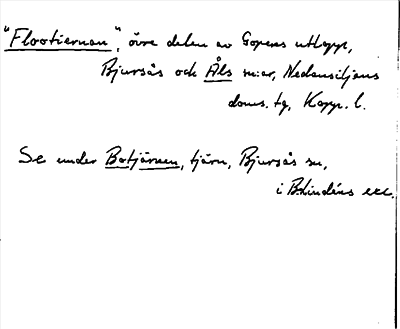 "Flootiernan", övre delen av Gopens utlopp,
Bjursås och Åls s:nar, Nedansiljans
doms. tg, Kopp. l.
Se under Botjärnen, tjärn, Bjursås sn,
i B. Lindéns exc.